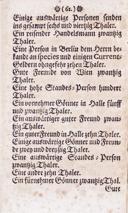 ( 61. )
Einige auswärtige Personen senden
ins gesamt sechs und vierzig Thaler.
Ein reisender Handelsmann zwantzig
Thaler.
Eine Person in Berlin dem Herrn be-
kandt an species und einigen Current-
Geldern ohngefehr zehen Thaler.
Gute Freunde von Wien zwantzig
Thaler.
Eine hohe Standes-Person hundert
Thaler.
Ein vornehmer Gönner in Halle fünff
und zwantzig Thaler.
Ein auswärtiger guter Freund zwantzig
Thaler.
Ein guter Freund in Halle zehn Thaler.
Einige auswärtige Gönner und Freun-
de zwey und dreyzig Thaler.
Eine auswärtige Standes-Person
zwantzig Thaler.
Eine andre zehn Thaler.
Ein fürnehmer Gönner zwantzig Thal.
Gute